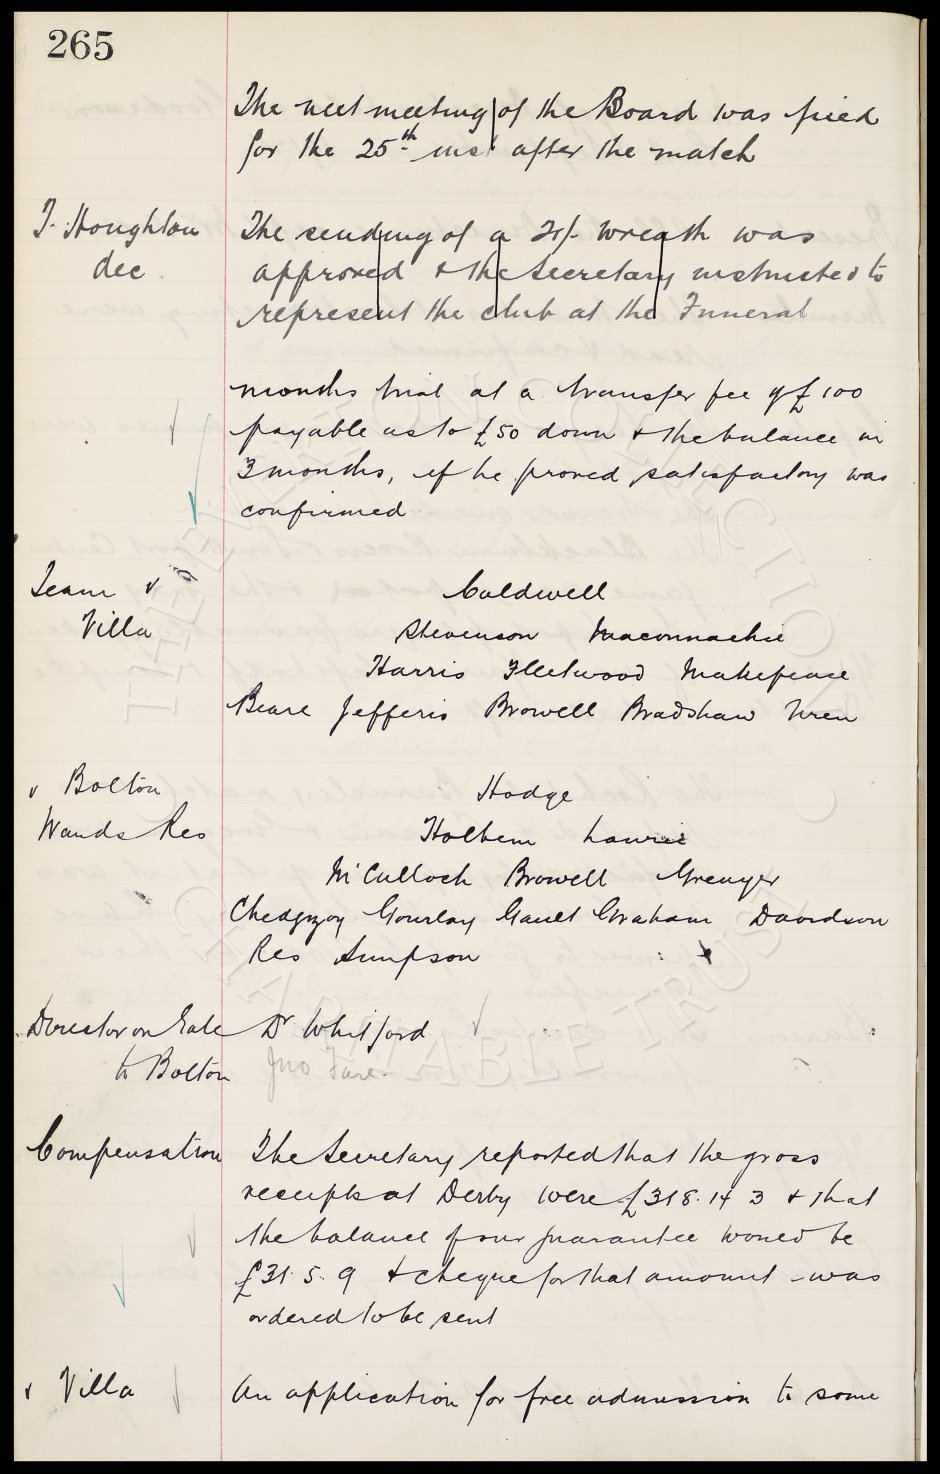 265
The next meeting of the Board was fixed
for the 25th inst after the match
T. Houghton
dec.
The sending of a 21/- wreath was
approved & the Secretary instructed to
represent the club at the Funeral
months trial at a transfer fee of £100
payable as to £50 down & the balance in
3 months, if he proved satisfactory was
confirmed
Team v
Villa
Caldwell
Stevenson Maconnachie
Harris Fleetwood Makepeace
Beare Jefferis Browell Bradshaw Wren
v Bolton
Wands Res
Hodge
Holbem Lawrie
McCulloch Browell Grenyer
Chedgzoy Gourlay Gault Graham Davidson
Res Simpson
Director on Gate
to Bolton
Dr Whitford
Jno Fare.
Compensation
The Secretary reported that the gross
receipts at Derby were £318.14 3 & that
the balance of our guarantee would be
£31. 5. 9 & cheque for that amount was
ordered to be sent
v Villa
An application for free admission to some
THE EVERTON COLLECTION CHARITABLE TRUST